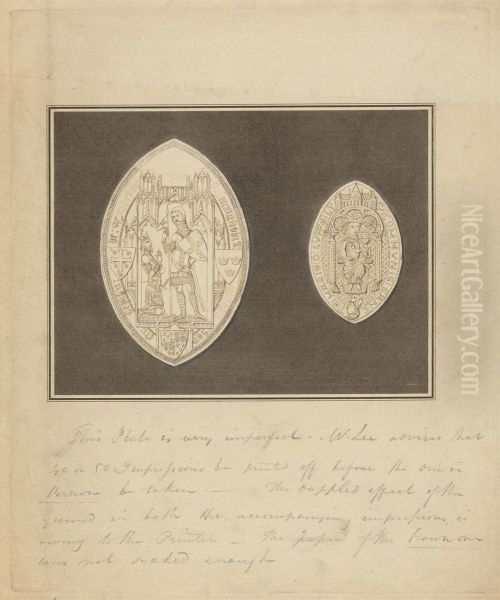 This Plate is very imperfect - Mr Lee advises that
40 or 50 Impressions be printed off before the one in
Brown be taken — The dappled effect of the
Ground in both the accompanying impressions is
owing to the Printer — The paper of the Brown one
was not soaked enough
NiceArtGallery.com